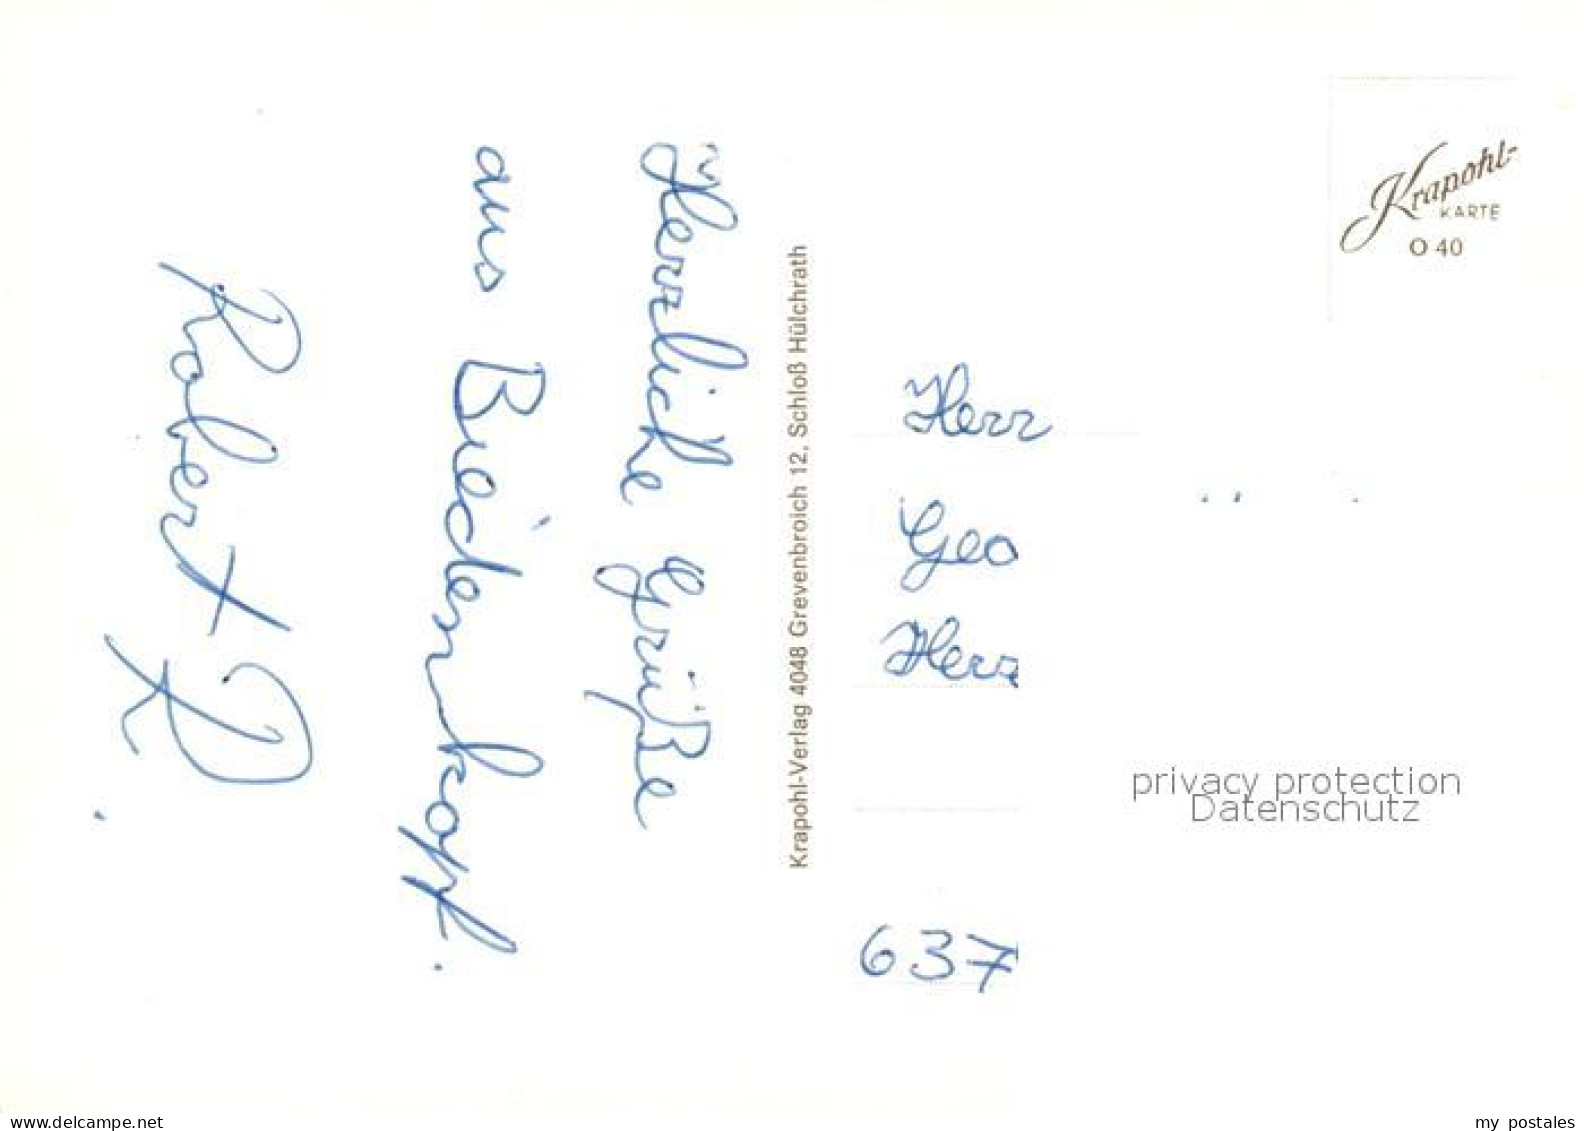 Herzliche Grüße
aus Biedenkopf.
Robert R.
Krapohl-Verlag 4048 Grevenbroich 12, Schloß Hülchrath
Krapohl-
KARTE
O 40
Herr
Geo
Herz
637
privacy protection
Datenschutz
www.delcampe.net
my_postales